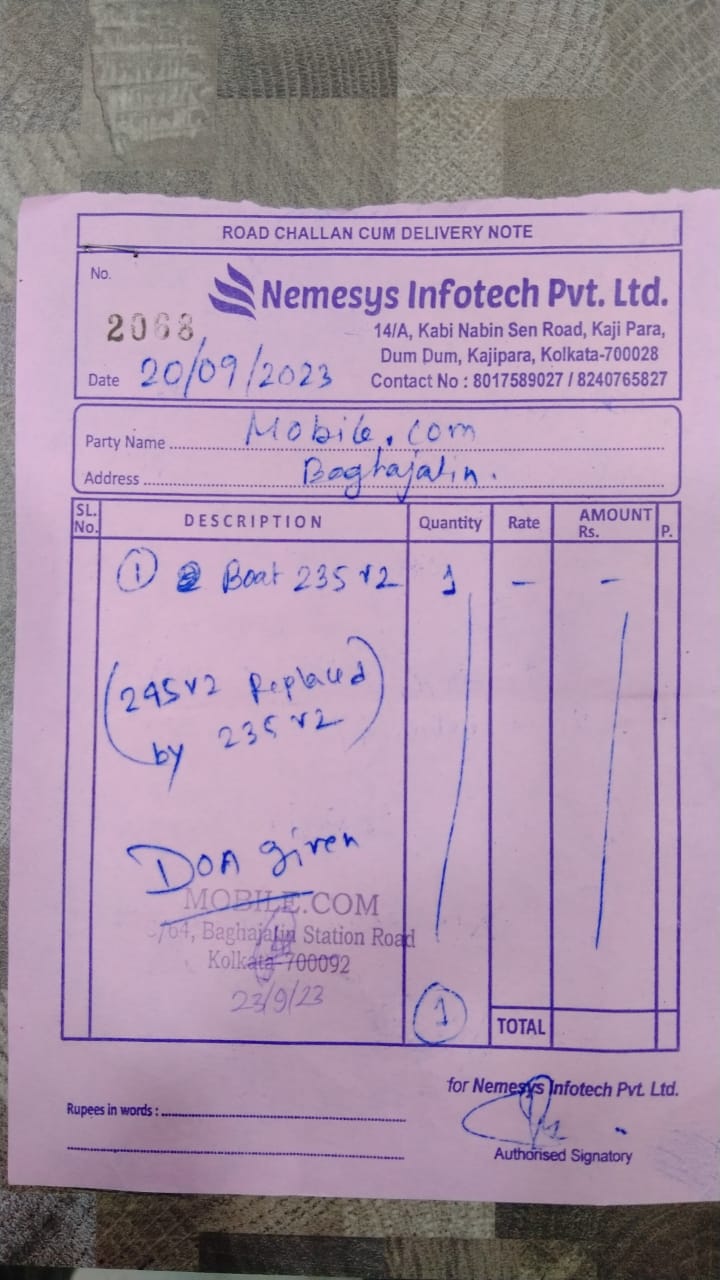 ROAD CHALLAN CUM DELIVERY NOTE
No.
2068
Nemesys Infotech Pvt. Ltd.
14/A, Kabi Nabin Sen Road, Kaji Para,
Dum Dum, Kajipara, Kolkata-700028
Date 20/09/2023
Contact No : 8017589027 / 8240765827
Party Name Mobile.com
Address Baghajatin.
SL. No. DESCRIPTION Quantity Rate AMOUNT Rs. P.
1 Boat 235 v2 1 - -
(245 v2 Replaced
by 235 v2)
DOA given
MOBILE.COM
/64, Baghajatin Station Road
Kolkata-700092
23/9/23
1 TOTAL
for Nemesys Infotech Pvt. Ltd.
Rupees in words :
Authorised Signatory